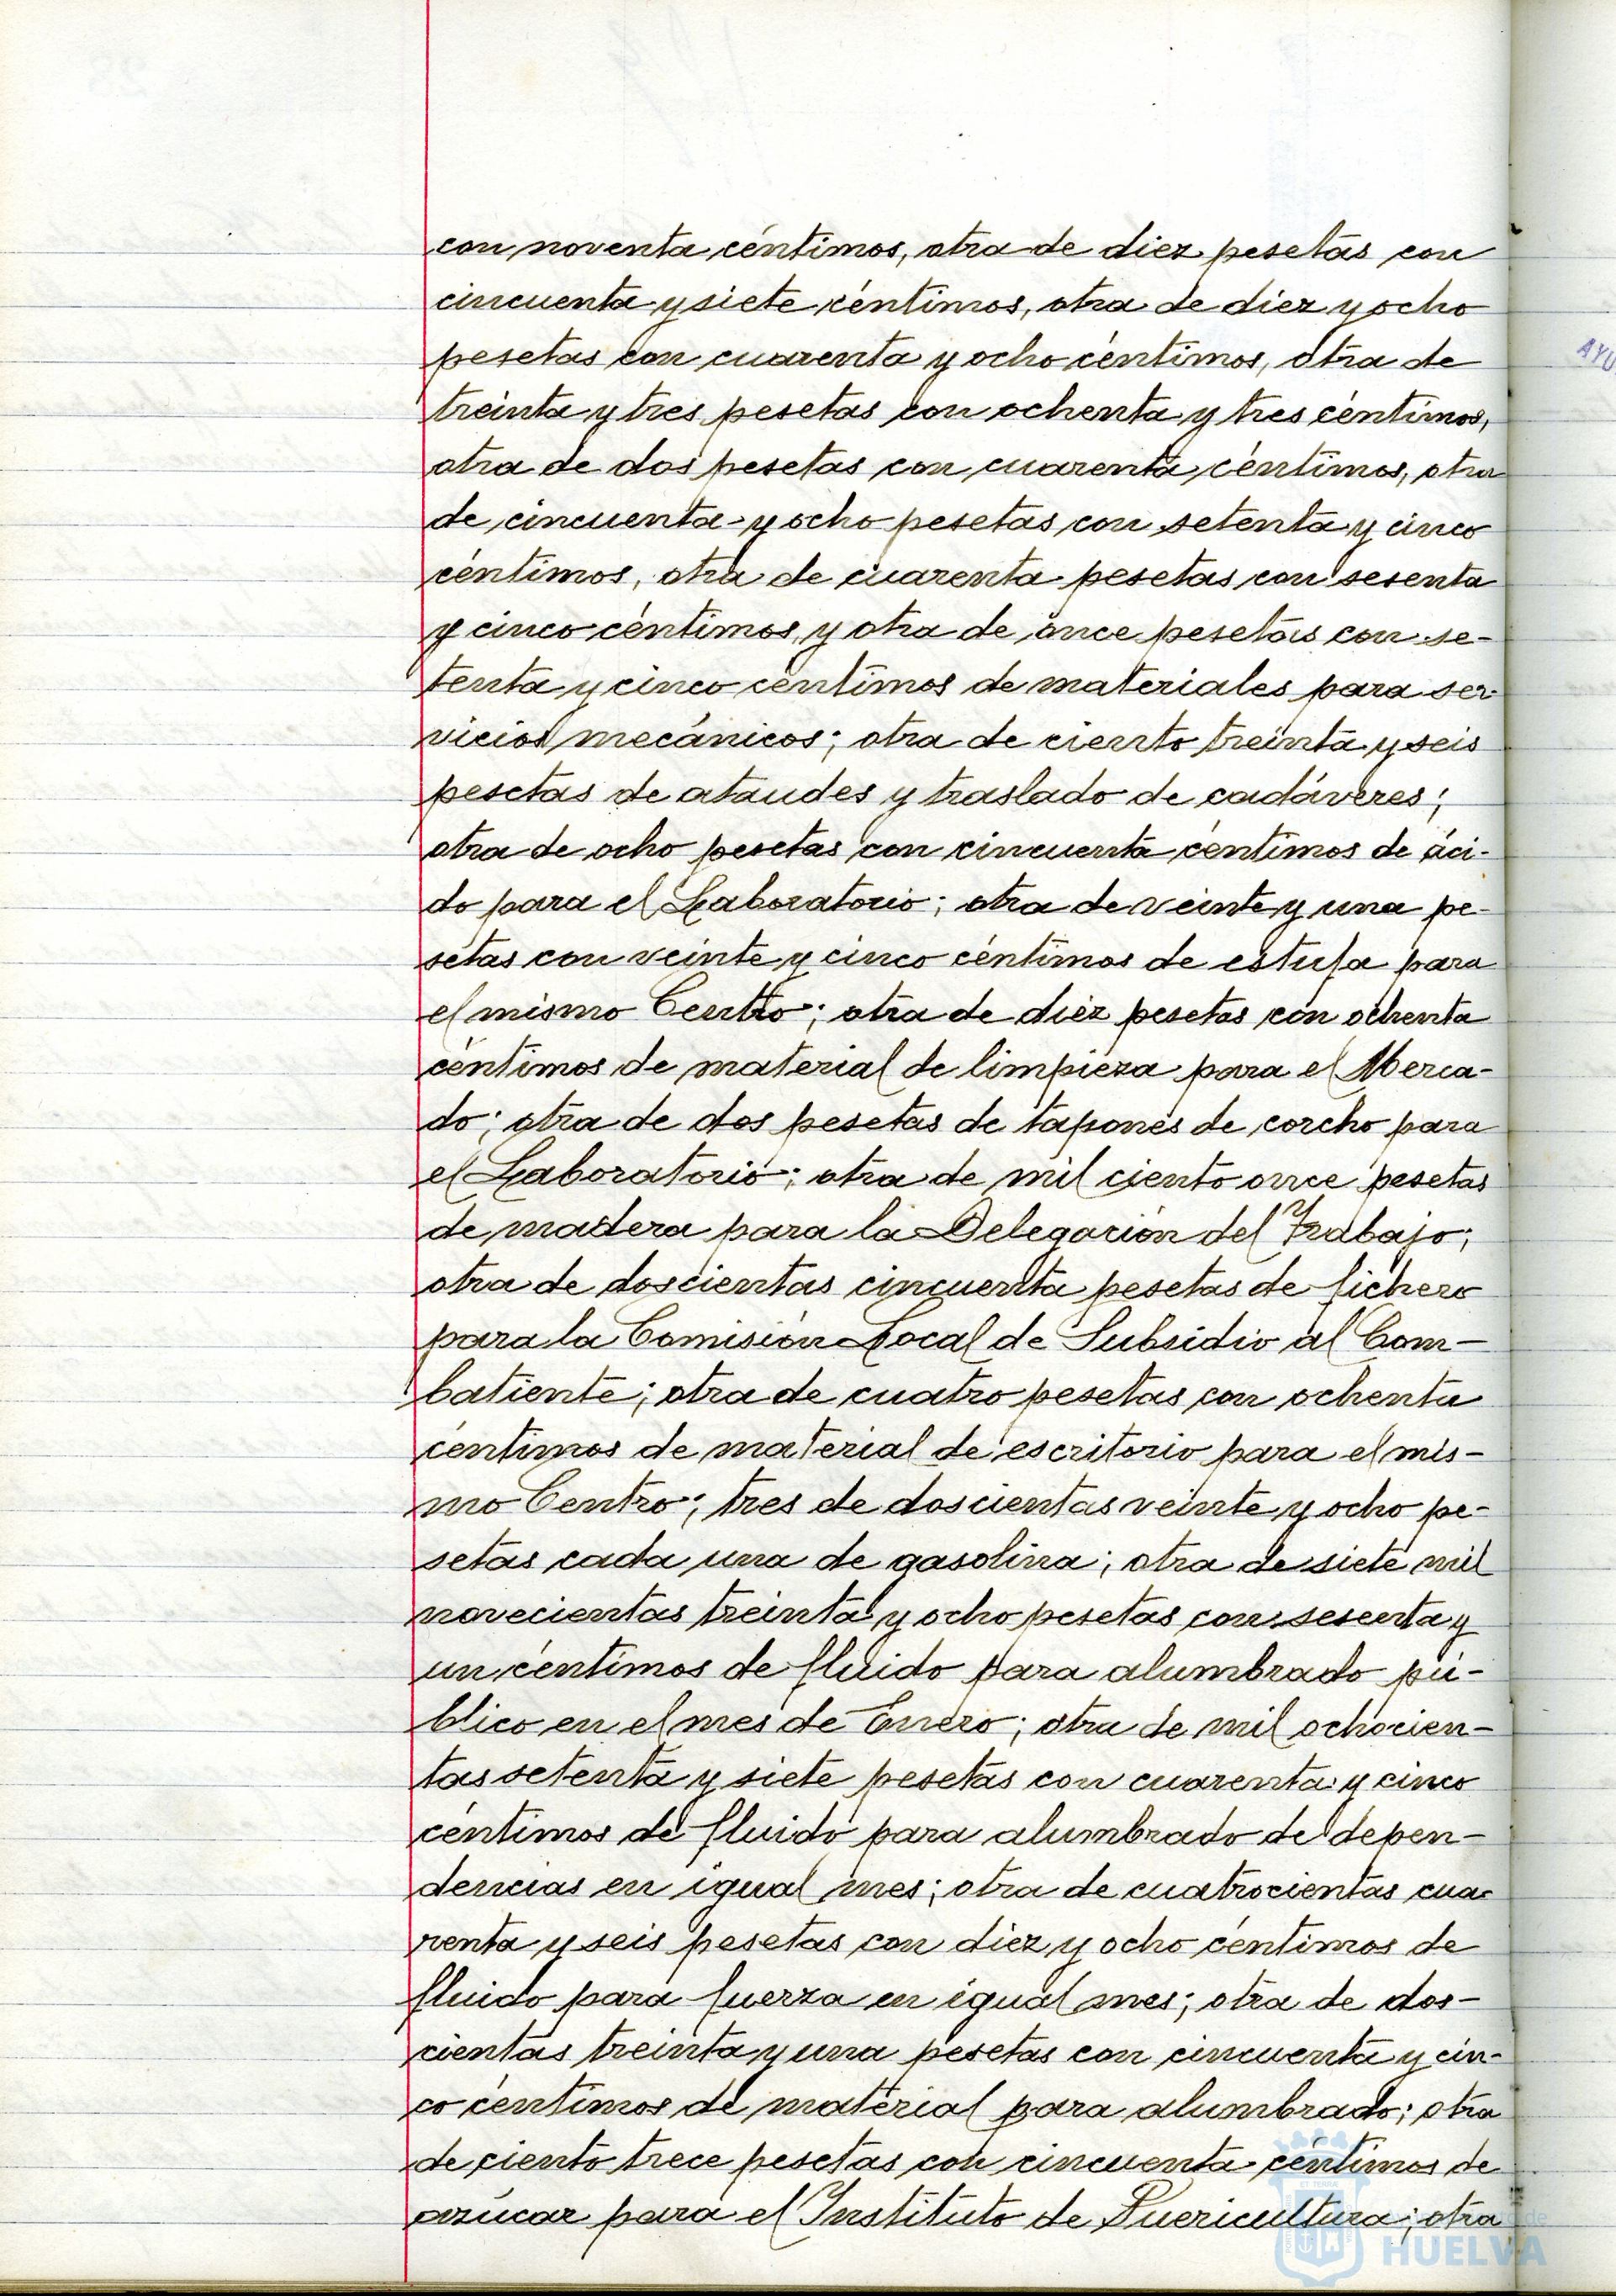 con noventa céntimos, otra de diez pesetas con
cincuenta y siete céntimos, otra de diez y ocho
pesetas con cuarenta y ocho céntimos, otra de
treinta y tres pesetas con ochenta y tres céntimos,
otra de dos pesetas con cuarenta céntimos, otra
de cincuenta y ocho pesetas con setenta y cinco
céntimos, otra de cuarenta pesetas con sesenta
y cinco céntimos, y otra de once pesetas con se-
tenta y cinco céntimos de materiales para ser-
vicios mecánicos; otra de ciento treinta y seis
pesetas de ataudes y traslado de cadáveres;
otra de ocho pesetas con cincuenta céntimos de áci-
do para el Laboratorio; otra de veinte y una pe-
setas con veinte y cinco céntimos de estufa para
el mismo Centro; otra de diez pesetas con ochenta
céntimos de material de limpieza para el Merca-
do; otra de dos pesetas de tapones de corcho para
el Laboratorio; otra de mil ciento once pesetas
de madera para la Delegación del Trabajo;
otra de doscientas cincuenta pesetas de fichero
para la Comisión Local de Subsidio al Com-
batiente; otra de cuatro pesetas con ochenta
céntimos de material de escritorio para el mis-
mo Centro; tres de doscientas veinte y ocho pe-
setas cada una de gasolina; otra de siete mil
novecientas treinta y ocho pesetas con sesenta y
un céntimos de fluido para alumbrado pú-
blico en el mes de Enero; otra de mil ochocien-
tas setenta y siete pesetas con cuarenta y cinco
céntimos de fluido para alumbrado de depen-
dencias en igual mes; otra de cuatrocientas cua-
renta y seis pesetas con diez y ocho céntimos de
fluido para fuerza en igual mes; otra de dos-
cientas treinta y una pesetas con cincuenta y cin-
co céntimos de material para alumbrado; otra
de ciento trece pesetas con cincuenta céntimos de
azúcar para el Instituto de Puericultura; otra
HUELVA
AYU